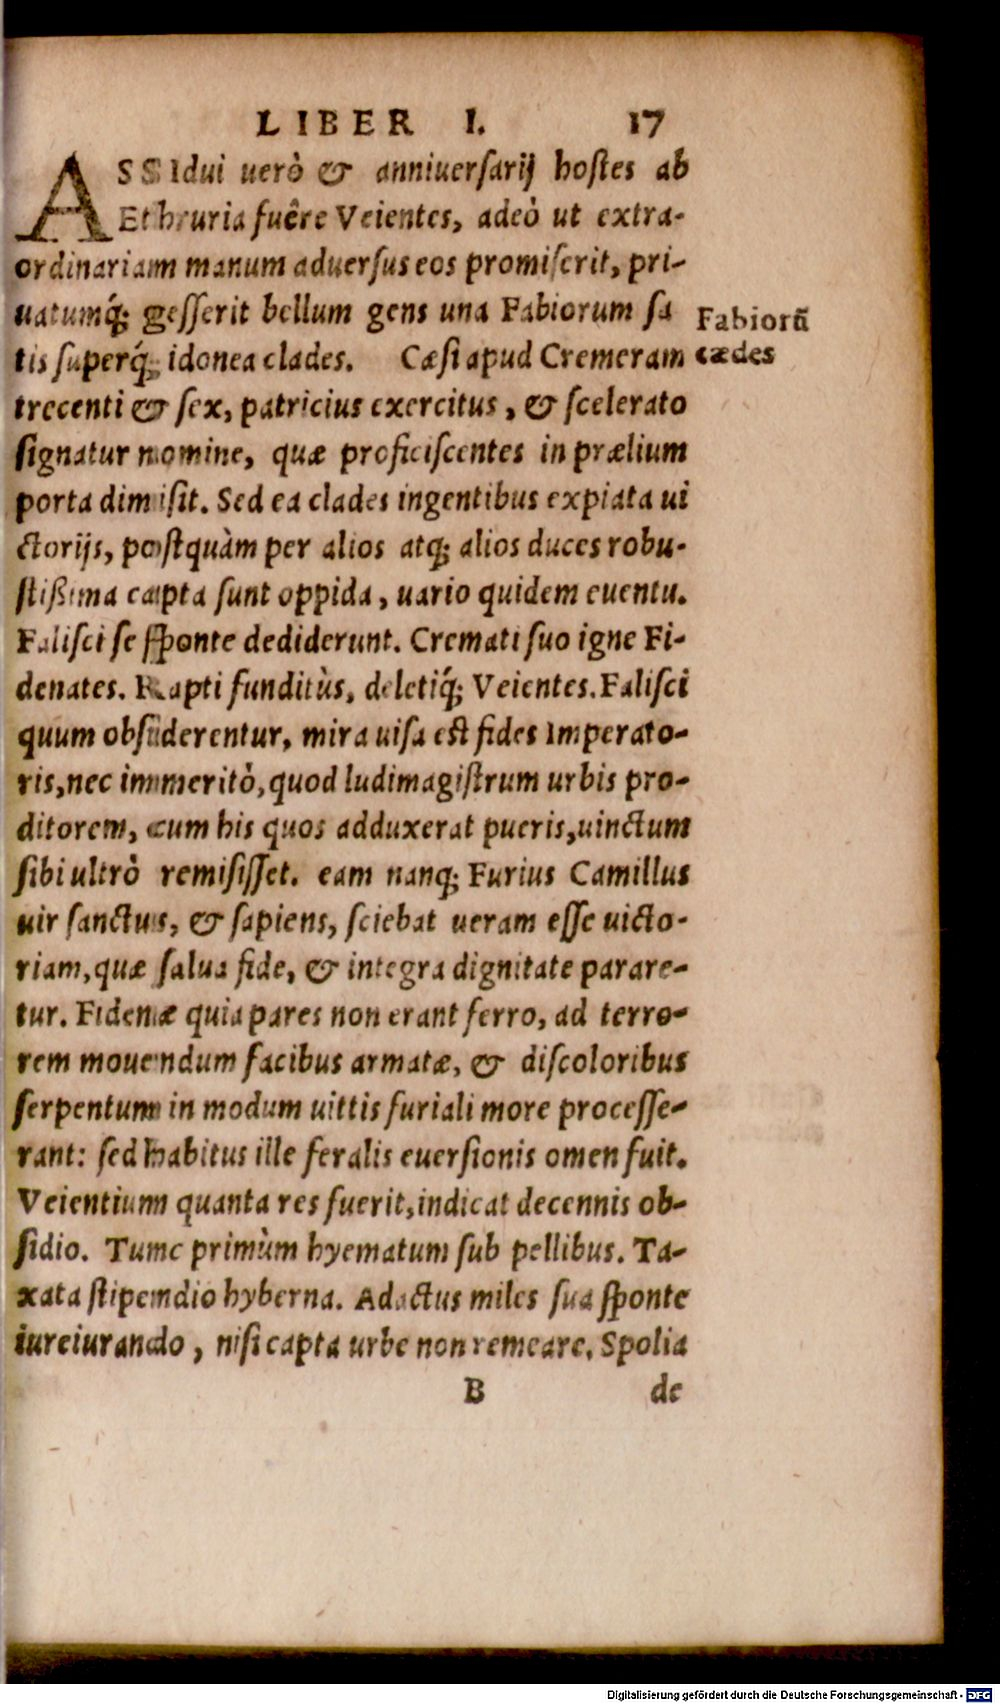 LIBER I. 17
ASSIdui uerò & anniuersarij hostes ab
Ethruria fuêre Veientes, adeò ut extra-
ordinariam manum aduersus eos promiserit, pri-
uatumq́; gesserit bellum gens una Fabiorum sa
tis superq́; idonea clades. Cæsi apud Cremeram
trecenti & sex, patricius exercitus, & scelerato
signatur nomine, quæ proficiscentes in prælium
porta dimisit. Sed ea clades ingentibus expiata ui
ctorijs, postquàm per alios atq; alios duces robu-
stißima capta sunt oppida, uario quidem euentu.
Falisci se sponte dediderunt. Cremati suo igne Fi-
denates. Rapti funditùs, deletiq́; Veientes. Falisci
quum obsiderentur, mira uisa est fides Imperato-
ris, nec immeritò, quod ludimagistrum urbis pro-
ditorem, cum his quos adduxerat pueris, uinctum
sibi ultrò remisisset. eam nanq; Furius Camillus
uir sanctus, & sapiens, sciebat ueram esse uicto-
riam, quæ salua fide, & integra dignitate parare-
tur. Fidenæ quia pares non erant ferro, ad terro-
rem mouendum facibus armatæ, & discoloribus
serpentum in modum uittis furiali more processe-
rant: sed habitus ille feralis euersionis omen fuit.
Veientium quanta res fuerit, indicat decennis ob-
sidio. Tunc primùm hyematum sub pellibus. Ta-
xata stipendio hyberna. Adactus miles sua sponte
iureiurando, nisi capta urbe non remeare. Spolia
B de
Fabiorũ
cædes
Digitalisierung gefördert durch die Deutsche Forschungsgemeinschaft - DFG